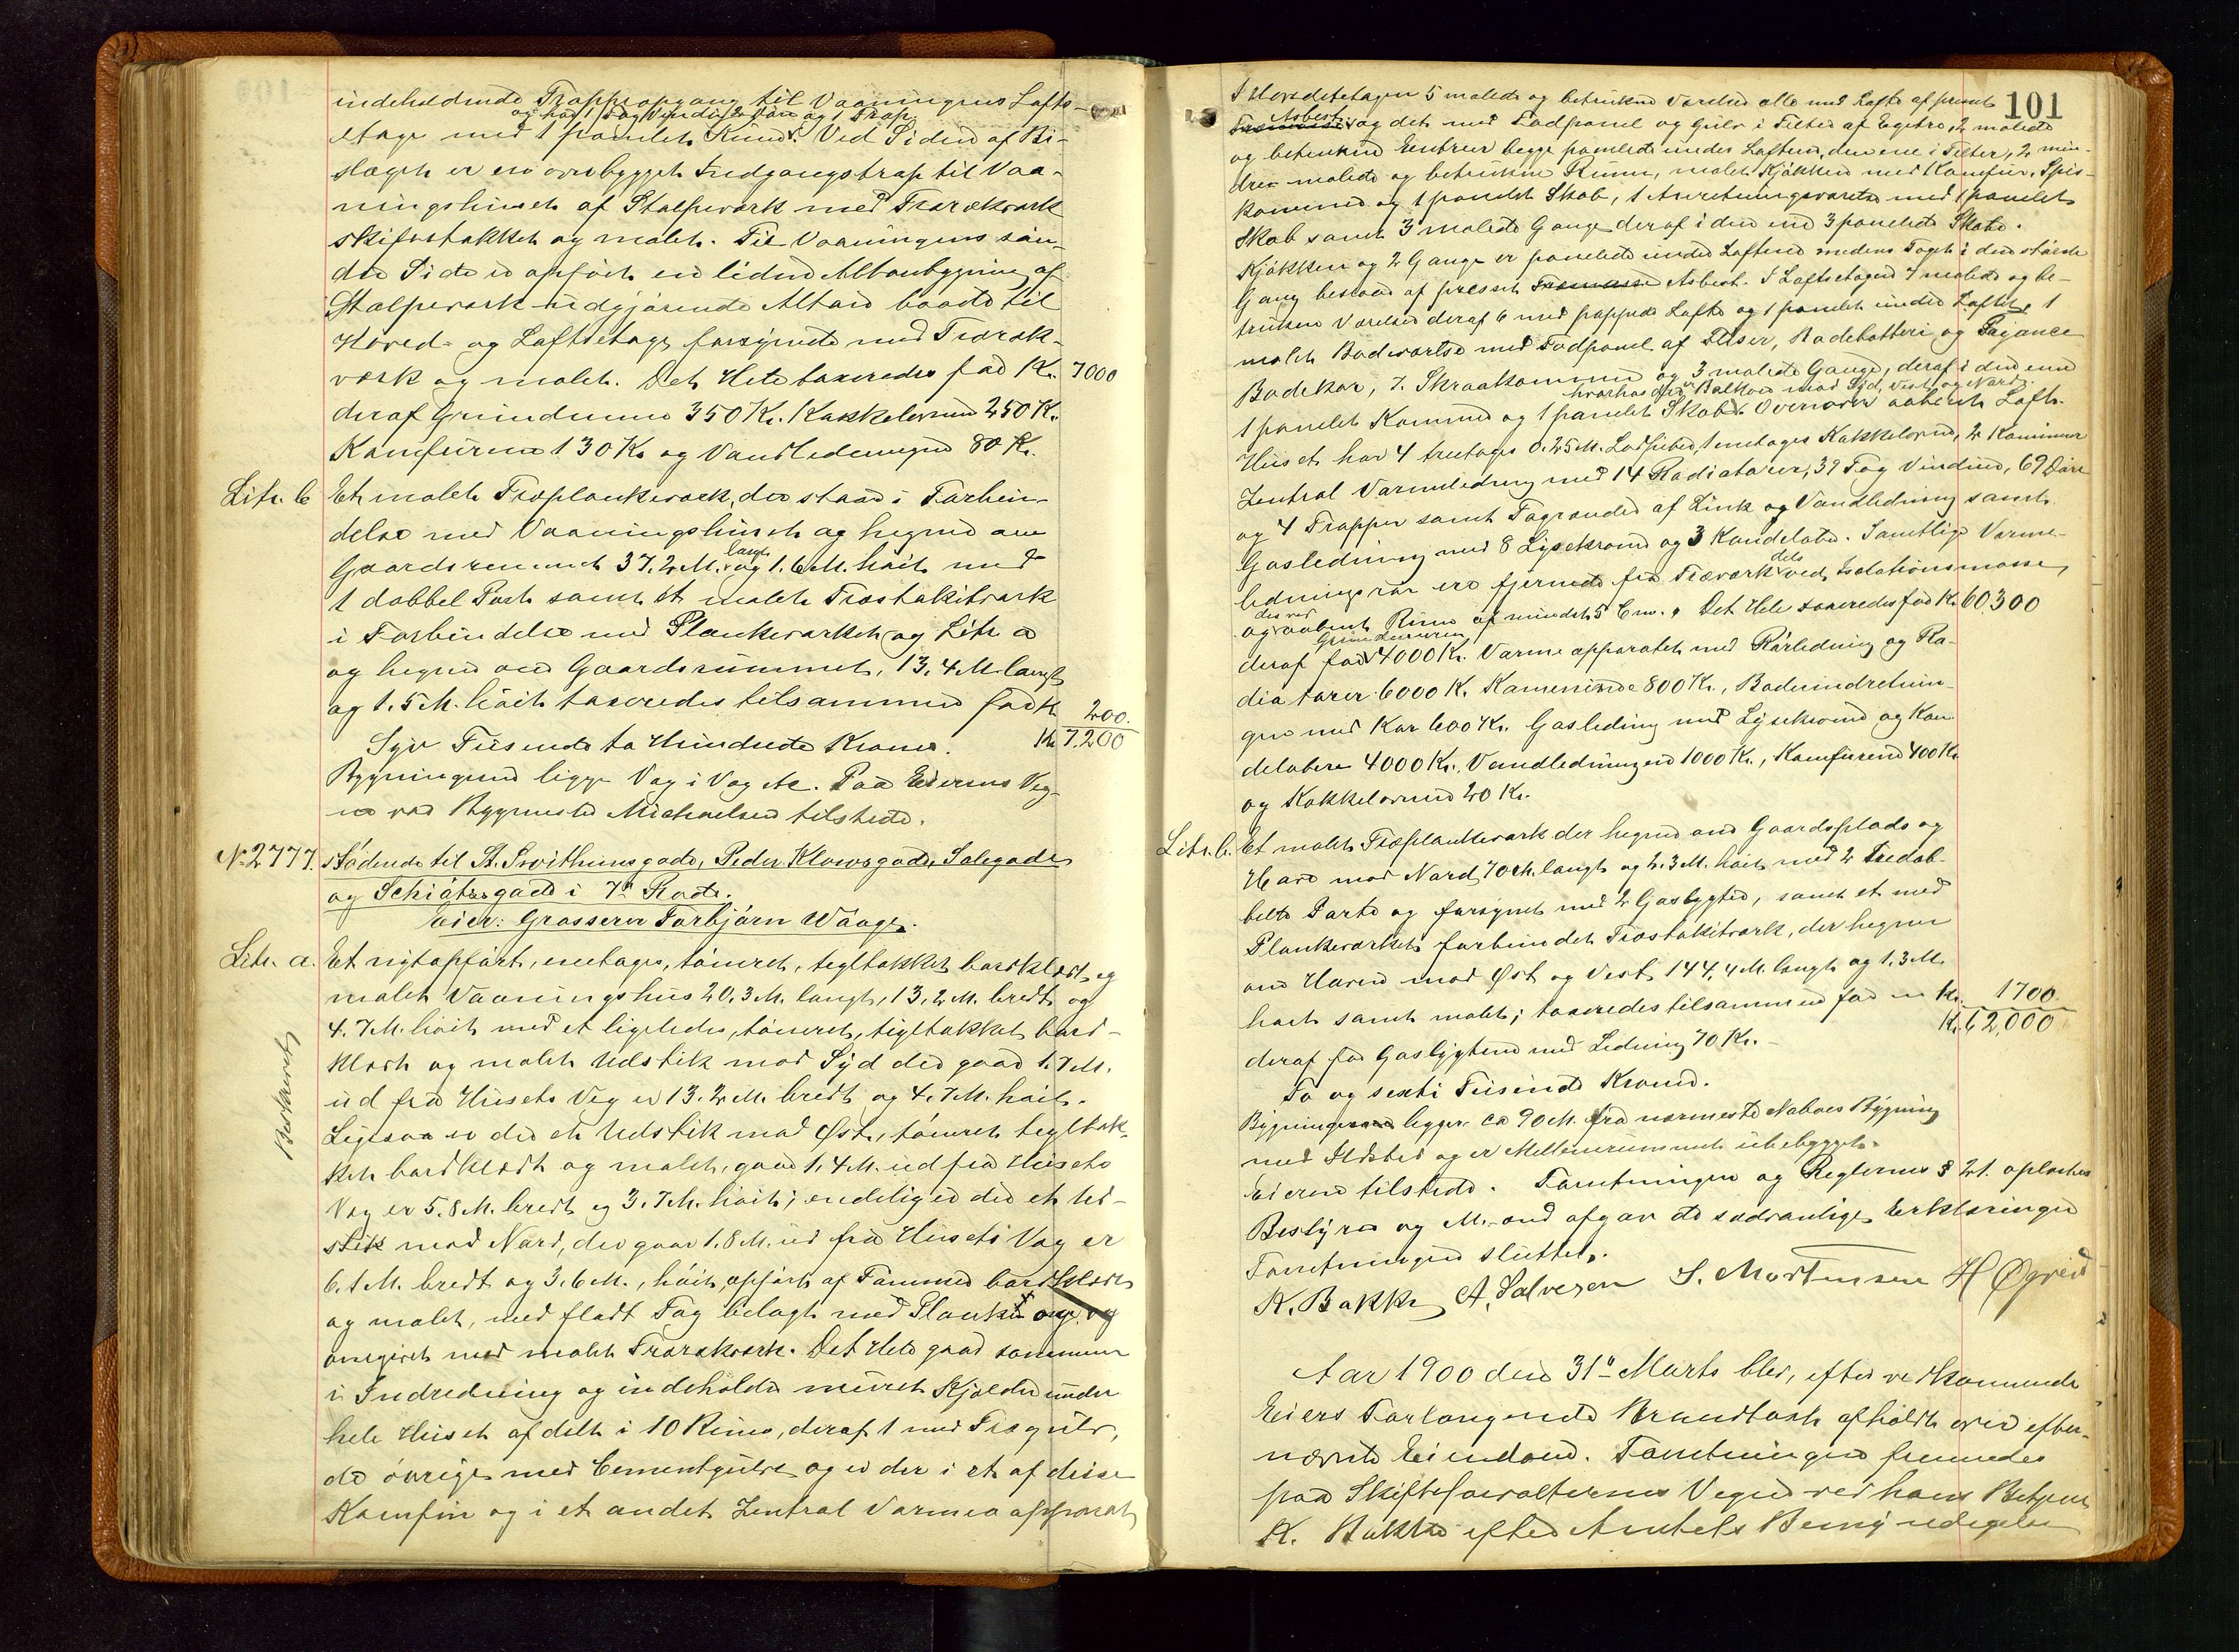 indeholdende Trappeopgang til Vaaningens Lofts-
og har 1 Fag Vinduer, 2 Döre og 1 Trap
etage med 1 panelet Rum. Ved Siden af Bi-
slaget er en overbygget Indgangstrap til Vaa-
ningshuset af Stolpeværk med Trærækværk
skifertækket og malet. Til Vaaningens søn-
dre Side er opført en liden Altanbygning af
Stolpeværk udgjørende Altan baade til
Hoved- og Loftsetage forsynede med Træræk-
værk og malet. Det Hele taxeredes for Kr. 7000
deraf Grundmuren 350 Kr. Kakkelovnene 250 Kr.
Komfurene 130 Kr. og Vandledningen 80 Kr.
Litr. b Et malet Træplankeværk, der staar i Forbin-
delse med Vaaningshuset og hegner om
Gaardsrummet 37.2 M. langt og 1.6 M. høit med
1 dobbel Port samt et malet Træstakitværk
i Forbindelse med Plankeværket og Litr. a
og hegner om Gaardsrummet, 13,4 M. langt
og 1.5 M. høit taxeredes tilsammen for Kr. 200.
Syv Tusende to Hundrede Kroner. Kr. 7.200
Bygningerne ligge Væg i Væg etc. Paa Eierens Veg-
ne var Bygmester Michaelsen tilstede.
No 2777. stødende til St. Svithunsgade, Peder Klowsgade, Solegade
og Schiøtzgade i 7de Rode.
Eier: Grosserer Torbjørn Waage.
Litr. a. Et nyt opført, enetages, tømret, tegltækket bordklædt og
malet Vaaningshus 20,3 M. langt, 13,2 M. bredt og
4.7 M. høit med et ligeledes, tømret, tegltækket bord-
klædt og malet Udstik mod Syd der gaar 1.7 M.
Beskrevet
ud fra Husets Væg er 13.2 M. bredt og 4.7 M. høit.
Ligesaa er der et Udstik mod Øst, tømret tegltæk-
ket bordklædt og malet, gaar 1,4 M. ud fra Husets
Væg er 5.8 M. bredt og 3.7 M. høit; endelig er der et Ud-
stik mod Nord, der gaar 1.8 M. ud fra Husets Væg er
6.1 M. bredt og 3.6 M., høit, opført af Tømmer bordklædt
og malet, med fladt Tag belagt med Planker og
omgivet med malet Trærækværk. Det Hele gaar sammen
i Indredning og indeholder muret Kjelder under
hele Huset afdelt i 10 Rum, deraf 1 med Trægulv,
de øvrige med Cementgulve og er der i et af disse
Komfur og i et andet Zentral Varmeapparat
101
I Hovedetagen 5 malede og betrukne Værelser alle med Lofte af presset
Asbest og det med Fodpanel og Gulv i Felter af Egetræ, 2 malede
og betrukne Entreer begge panelede under Loftene, den ene i Felter, 2 min-
dre malede og betrukne Rum, malet Kjøkken med Komfur, Spis-
kammer og 1 panelet Skab, 1 Anretningsværelse med 1 panelet
Skab samt 3 malede Gange deraf i den ene 3 panelede Skabe.
Kjøkken og 2 Gange er panelede under Loftene medens Taget i den største
Gang bestaar af presset Asbest. I Loftsetagen 7 malede og be-
trukne Værelser deraf 6 med pappede Lofte og 1 panelet under Loftet, 1
malet Badeværelse med Fodpanel af Fliser, Badebatteri og Fayance
Badekar, 7. Skraakammere og 3 malede Gange, deraf i den ene
hvorhos der er Balkon mod Syd, Vest og Nord.
1 panelet Kammer og 1 panelet Skab. Ovenover aabent Loft.
Huset har 4 treetages 0.25 M. Lodpiber, 1 enetages Kakkelovn, 2 Kaminer
Zentral Varmeledning med 14 Radiatorer, 39 Fag Vinduer, 69 Døre
og 4 Trapper samt Tagrender af Zink og Vandledning samt
Gasledning med 8 Lysekroner og 3 Kandelabre. Samtlige Varme-
ledningsrør ere fjernede fra Træværk dels ved Isolationsmasse,
og dels ved aabent Rum af mindst 5 Cm. Det Hele taxeredes for Kr. 60,300
deraf for Grundmuren 4000 Kr. Varmeapparatet med Rørledning og Ra-
diatorer 6000 Kr. Kaminerne 800 Kr., Badeindretnin-
gen med Kar 600 Kr. Gasledning med Lysekroner og Kan-
delabere 4000 Kr., Vandledningen 1000 Kr., Komfurene 400 Kr.
og Kakkelovnen 20 Kr.
Litr. b. Et malet Træplankeværk der hegner om Gaardsplads og
Have mod Nord, 70 M. langt og 2.3 M. høit med 2 Tredob-
belte Porte og forsynet med 2 Gaslygter, samt et med
Plankeværket forbundet Træstakitværk, der hegner
om Haven mod Øst og Vest, 144,4 M. langt og 1.3 M.
høit samt malet; taxeredes tilsammen for Kr. 1700.
Kr. 62,000
deraf for Gaslygterne med Ledning 70 Kr.
To og sexti Tusinde Kroner.
Bygningen ligger ca 90 M. fra nærmeste Naboes Bygning
med Ildsted og er Mellemrummet ubebygget.
Eieren tilstede. Forretningen og Reglernes § 21. oplæstes
Bestyrer og Mænd afgav de sædvanlige Erklæringer
Forretningen sluttet.
K. Bakke A. Salvesen S. Mortensen H Øgreid
Aar 1900 den 31te Marts blev, efter vedkommende
Eiers Forlangende Brandtaxt afholdt over efter-
nævnte Eiendom. Forretningen fremmedes
paa Skifteforvalterens Vegne ved hans Betjent
K. Bakke efter Amtets Bemyndigelse